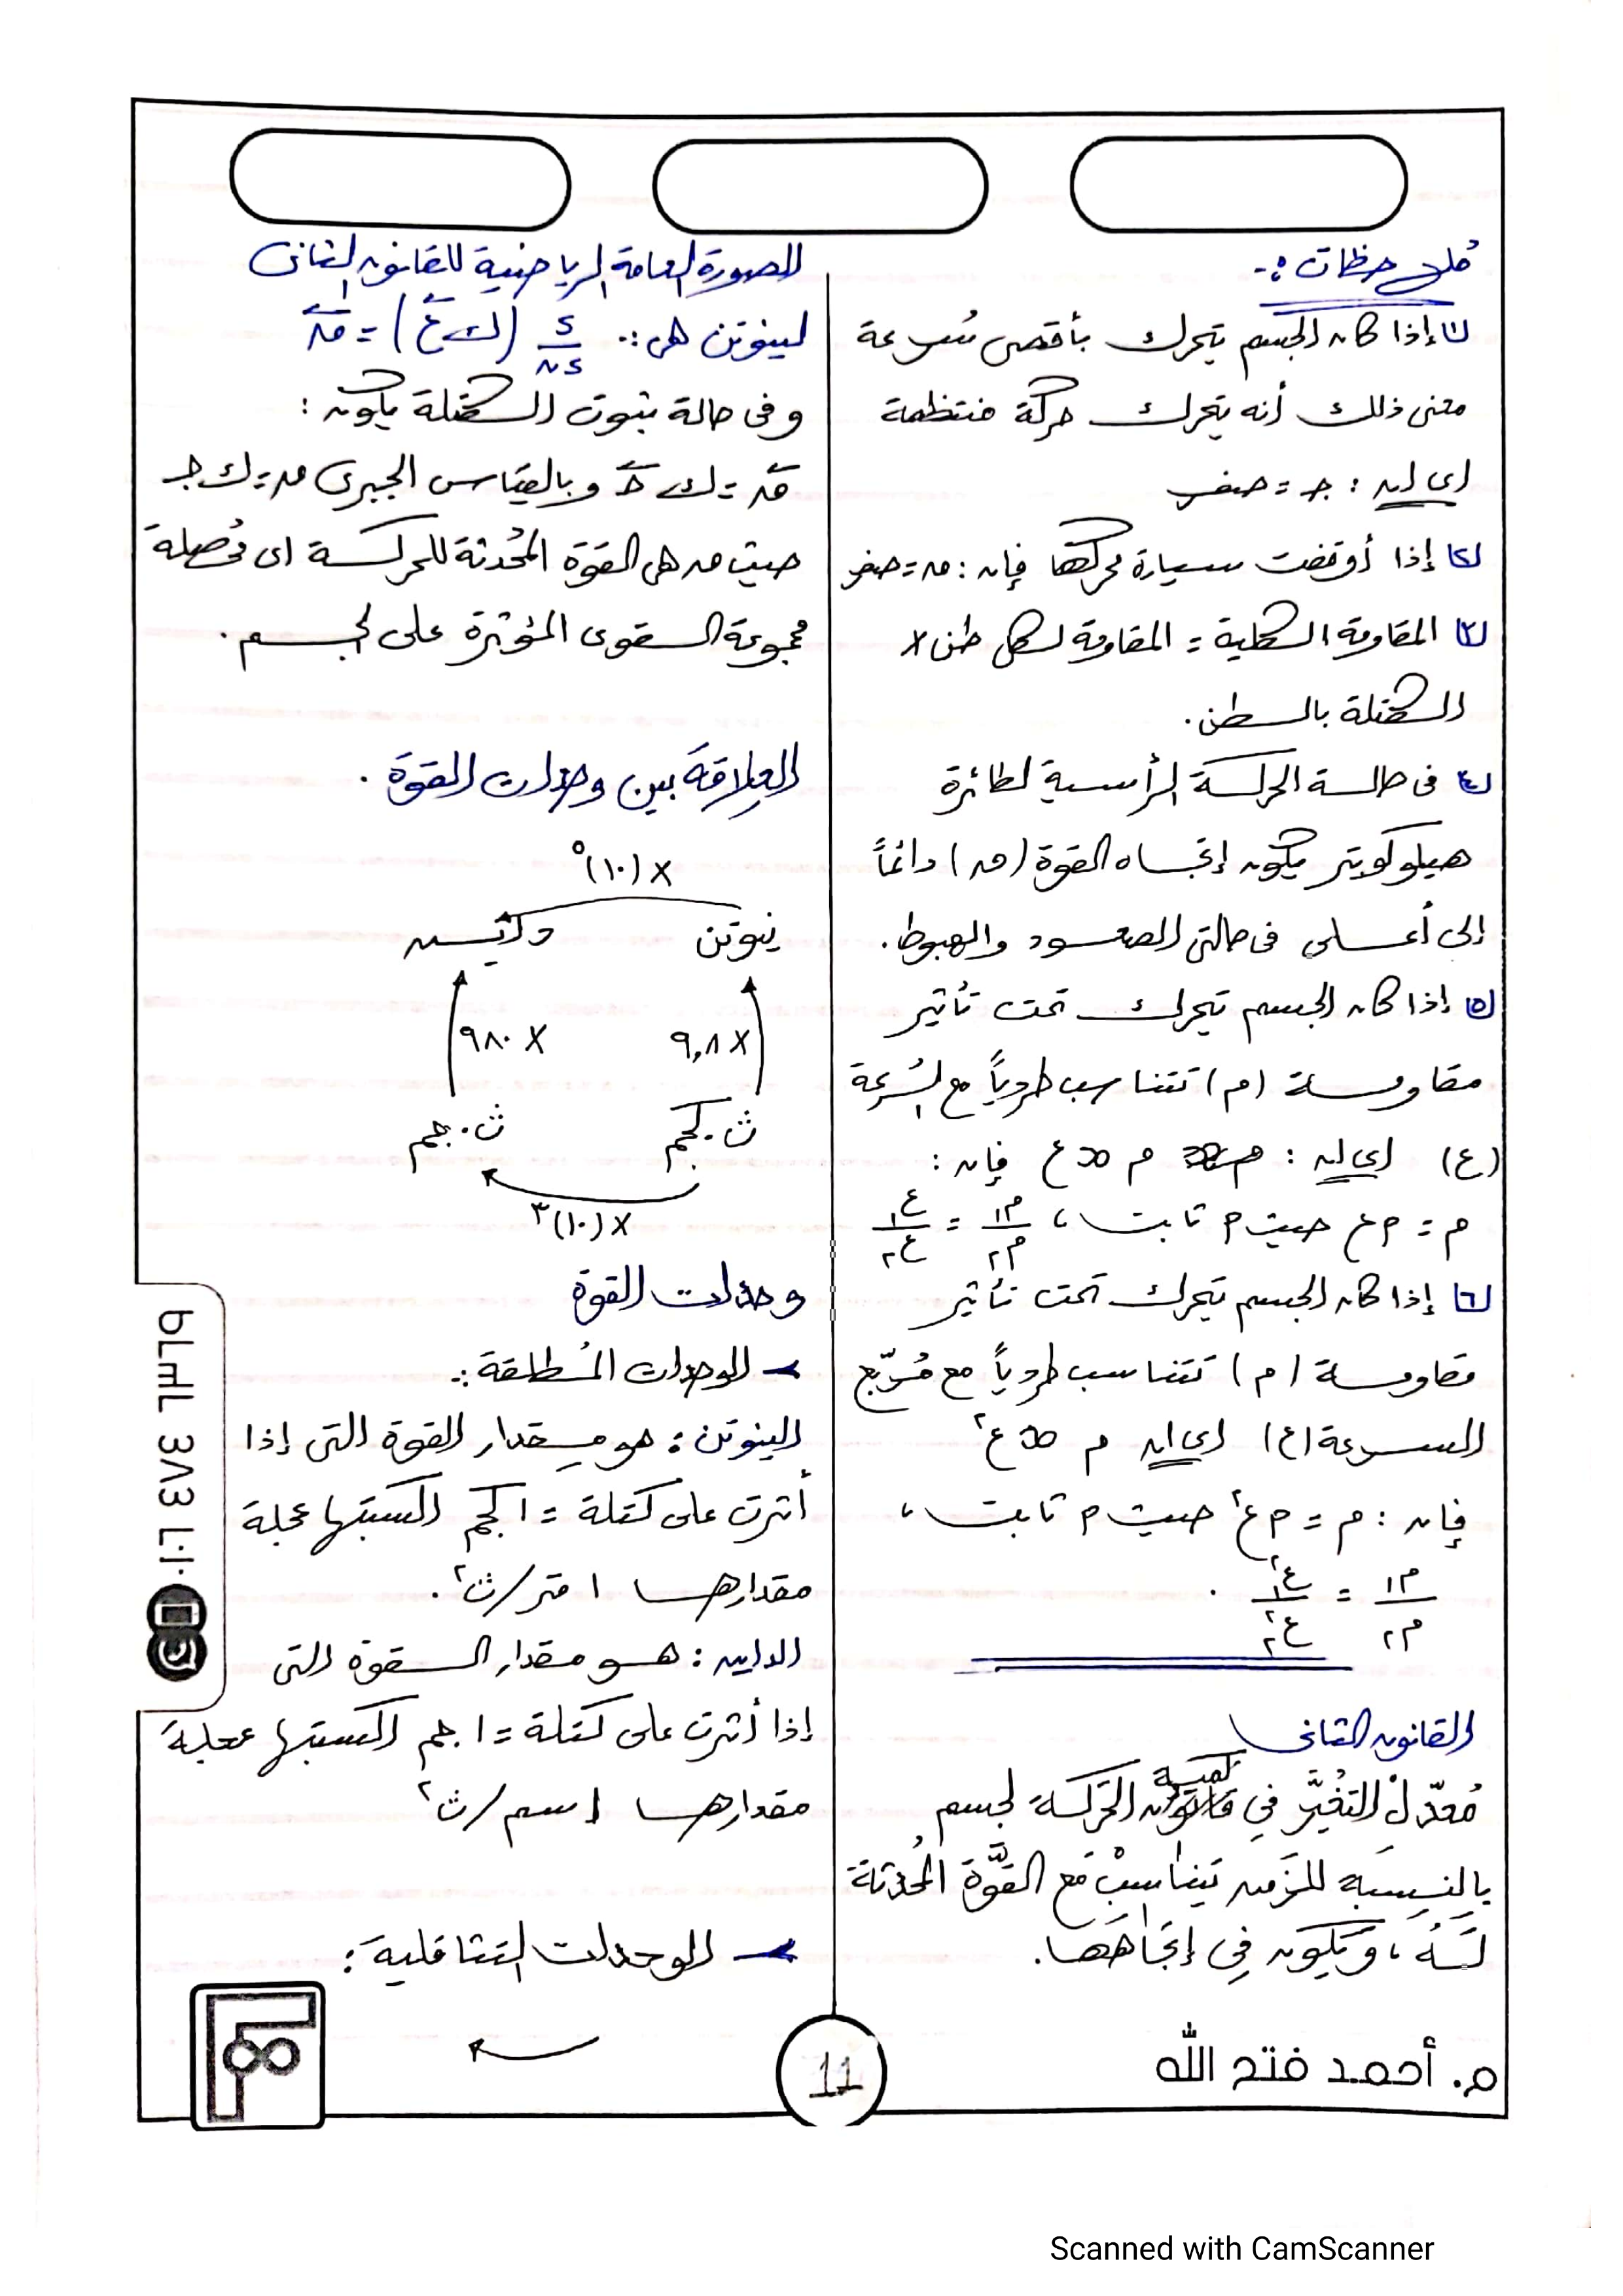 ملاحظات :-
١) إذا كان الجسم يتحرك بأقصى سُرعة
معنى ذلك أنه يتحرك حركة منتظمة
اى ان : جـ = صفر
٢) إذا أوقفت سيارة محركها فإن : مہ = صفر
٣) المقاومة الكلية = المقاومة لكل طن ×
الكتلة بالطن.
٤) فى حالة الحركة الرأسية لطائرة
هيلوكوبتر يكون إتجاه القوة (مہ) دائماً
إلى أعلى فى حالتى الصعود والهبوط.
٥) إذا كان الجسم يتحرك تحت تأثير
مقاومة (م) تتناسب طردياً مع السُرعة
(ع) اى ان : م ∝ ع فإن :
م = م ع حيث م ثابت ، م١/م٢ = ع١/ع٢
٦) إذا كان الجسم يتحرك تحت تأثير
مقاومة (م) تتناسب طردياً مع مُربّع
السرعة (ع) اى ان م ∝ ع٢
فإن : م = م ع٢ حيث م ثابت ،
م١/م٢ = ع١٢/ع٢٢ .
القانون الثانى
مُعدّلْ التغُيَّر فِي كمية الحَركَة لجسم
بِالنِسبَة للزَمن يَتناسِبْ مَع القُوَّة المُحدثة
لَهُ ، وَيَكون فِي إتجَاهَها.
الصورة العامة الرياضية للقانون الثانى
لنيوتن هى :. ء/ءن (ك ع) = مہ
وفى حالة ثبوت الكتلة يكون :
مہ = ك حـ وبالقياس الجبرى مہ = ك جـ
حيث مہ هى القوة المُحدثة للحركة اى مُحصلة
مجموعة القوى المؤثرة على الجسم .
العلاقة بين وحدات القوة .
× (١٠)٥
نيوتن داين
× ٩,٨ × ٩٨٠
ث.كجم ث.جم
× (١٠)٣
وحدات القوة
← الوحدات المُطلقة :-
النيوتن : هو مقدار القوة التى إذا
أثرت على كتلة = ١ كجم اكسبتها عجلة
مقدارها ١ متر/ث٢ .
الداين : هو مقدار القوة التى
إذا أثرت على كتلة = ١ جم اكسبتها عجلة
مقدارها ١ سم/ث٢
← الوحدات التثاقلية :
م. أحمد فتح الله
11
Scanned with CamScanner